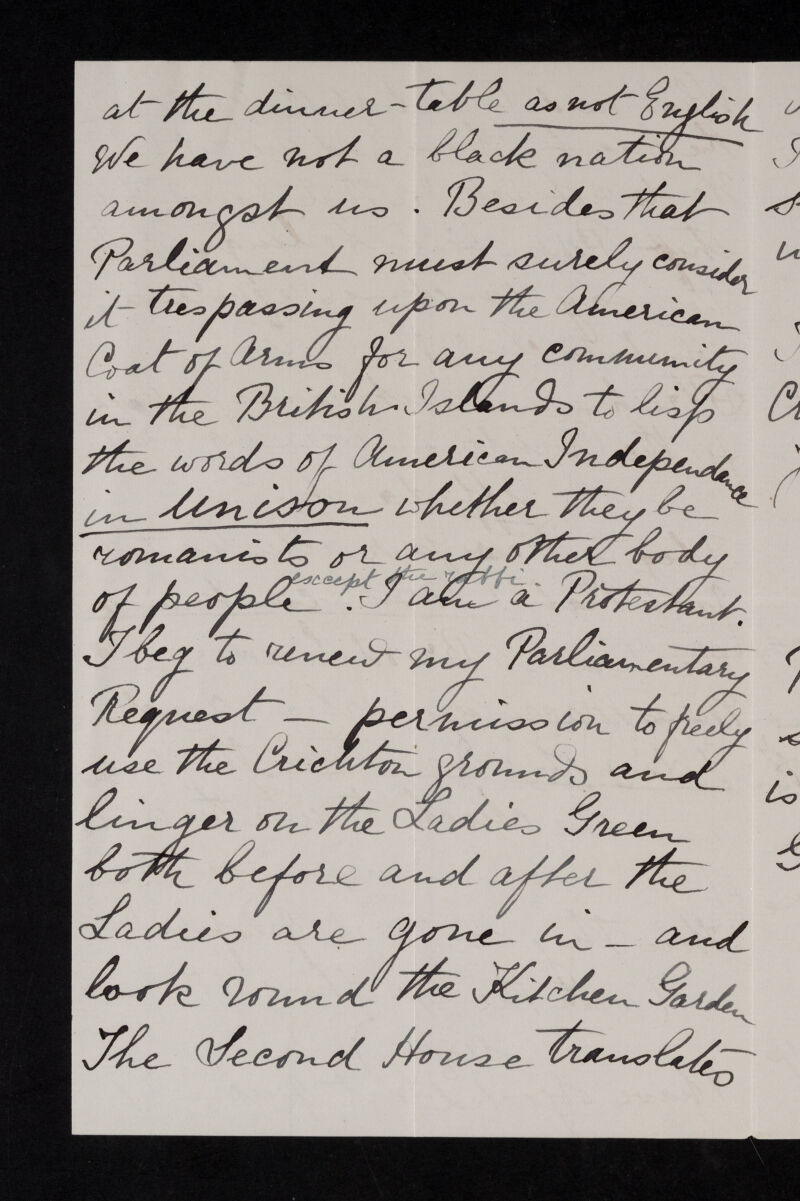 at the dinner-table as not English
We have not a black nation
amongst us. Besides that
Parliament must surely consider
it trespassing upon the American
Coat of Arms for any community
in the British Islands to lisp
the words of American Independance
in Unison whether they be
romanists or any other body
except the rabbi
of people. I am a Protestant.
I beg to renew my Parliamentary
Request — permission to freely
use the Crichton grounds and
linger on the Ladies Green
both before and after the
Ladies are gone in — and
look round the Kitchen Garden
The Second House translates